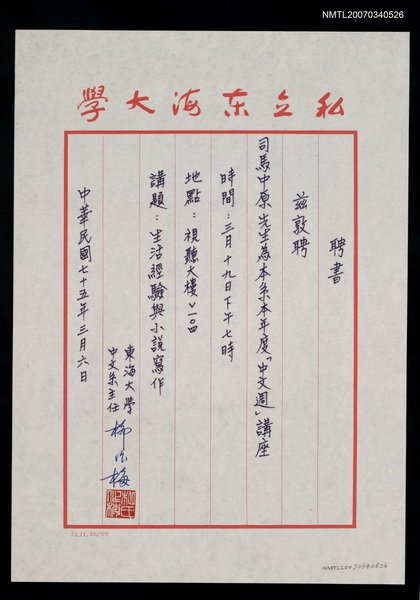 NMTL20070340526
私立東海大學
聘書
茲敦聘
司馬中原先生為本系本年度「中文週」講座
時間：三月十九日下午七時
地點：視聽大樓
講題：生活經驗與小說寫作
東海大學
中文系主任
中華民國七十五年三月六日